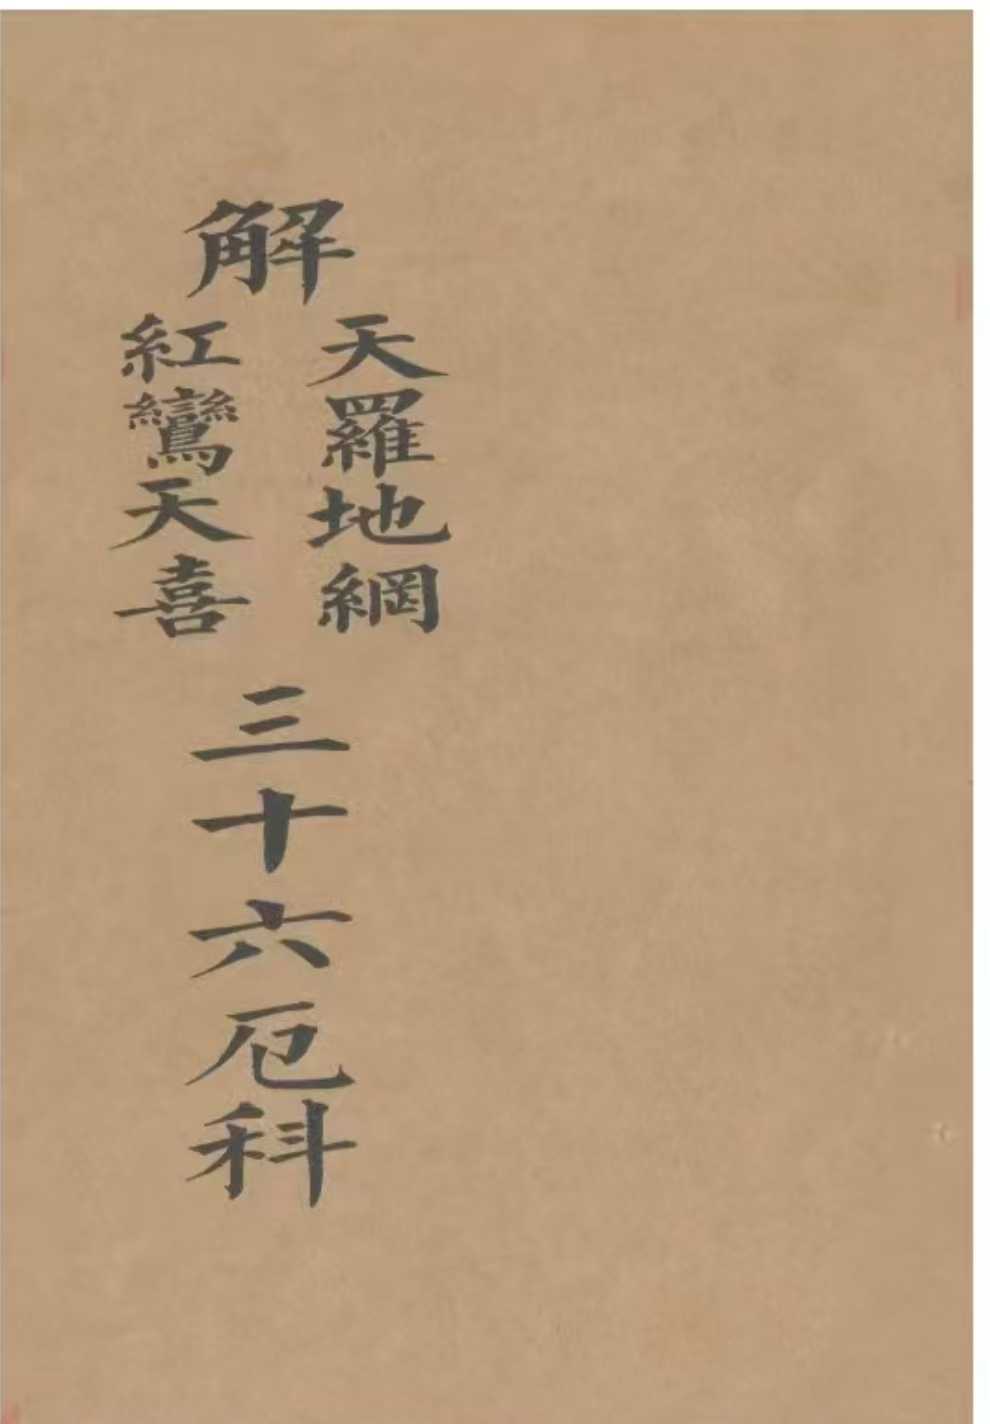 解
天羅地網
紅鸞天喜
三十六厄科